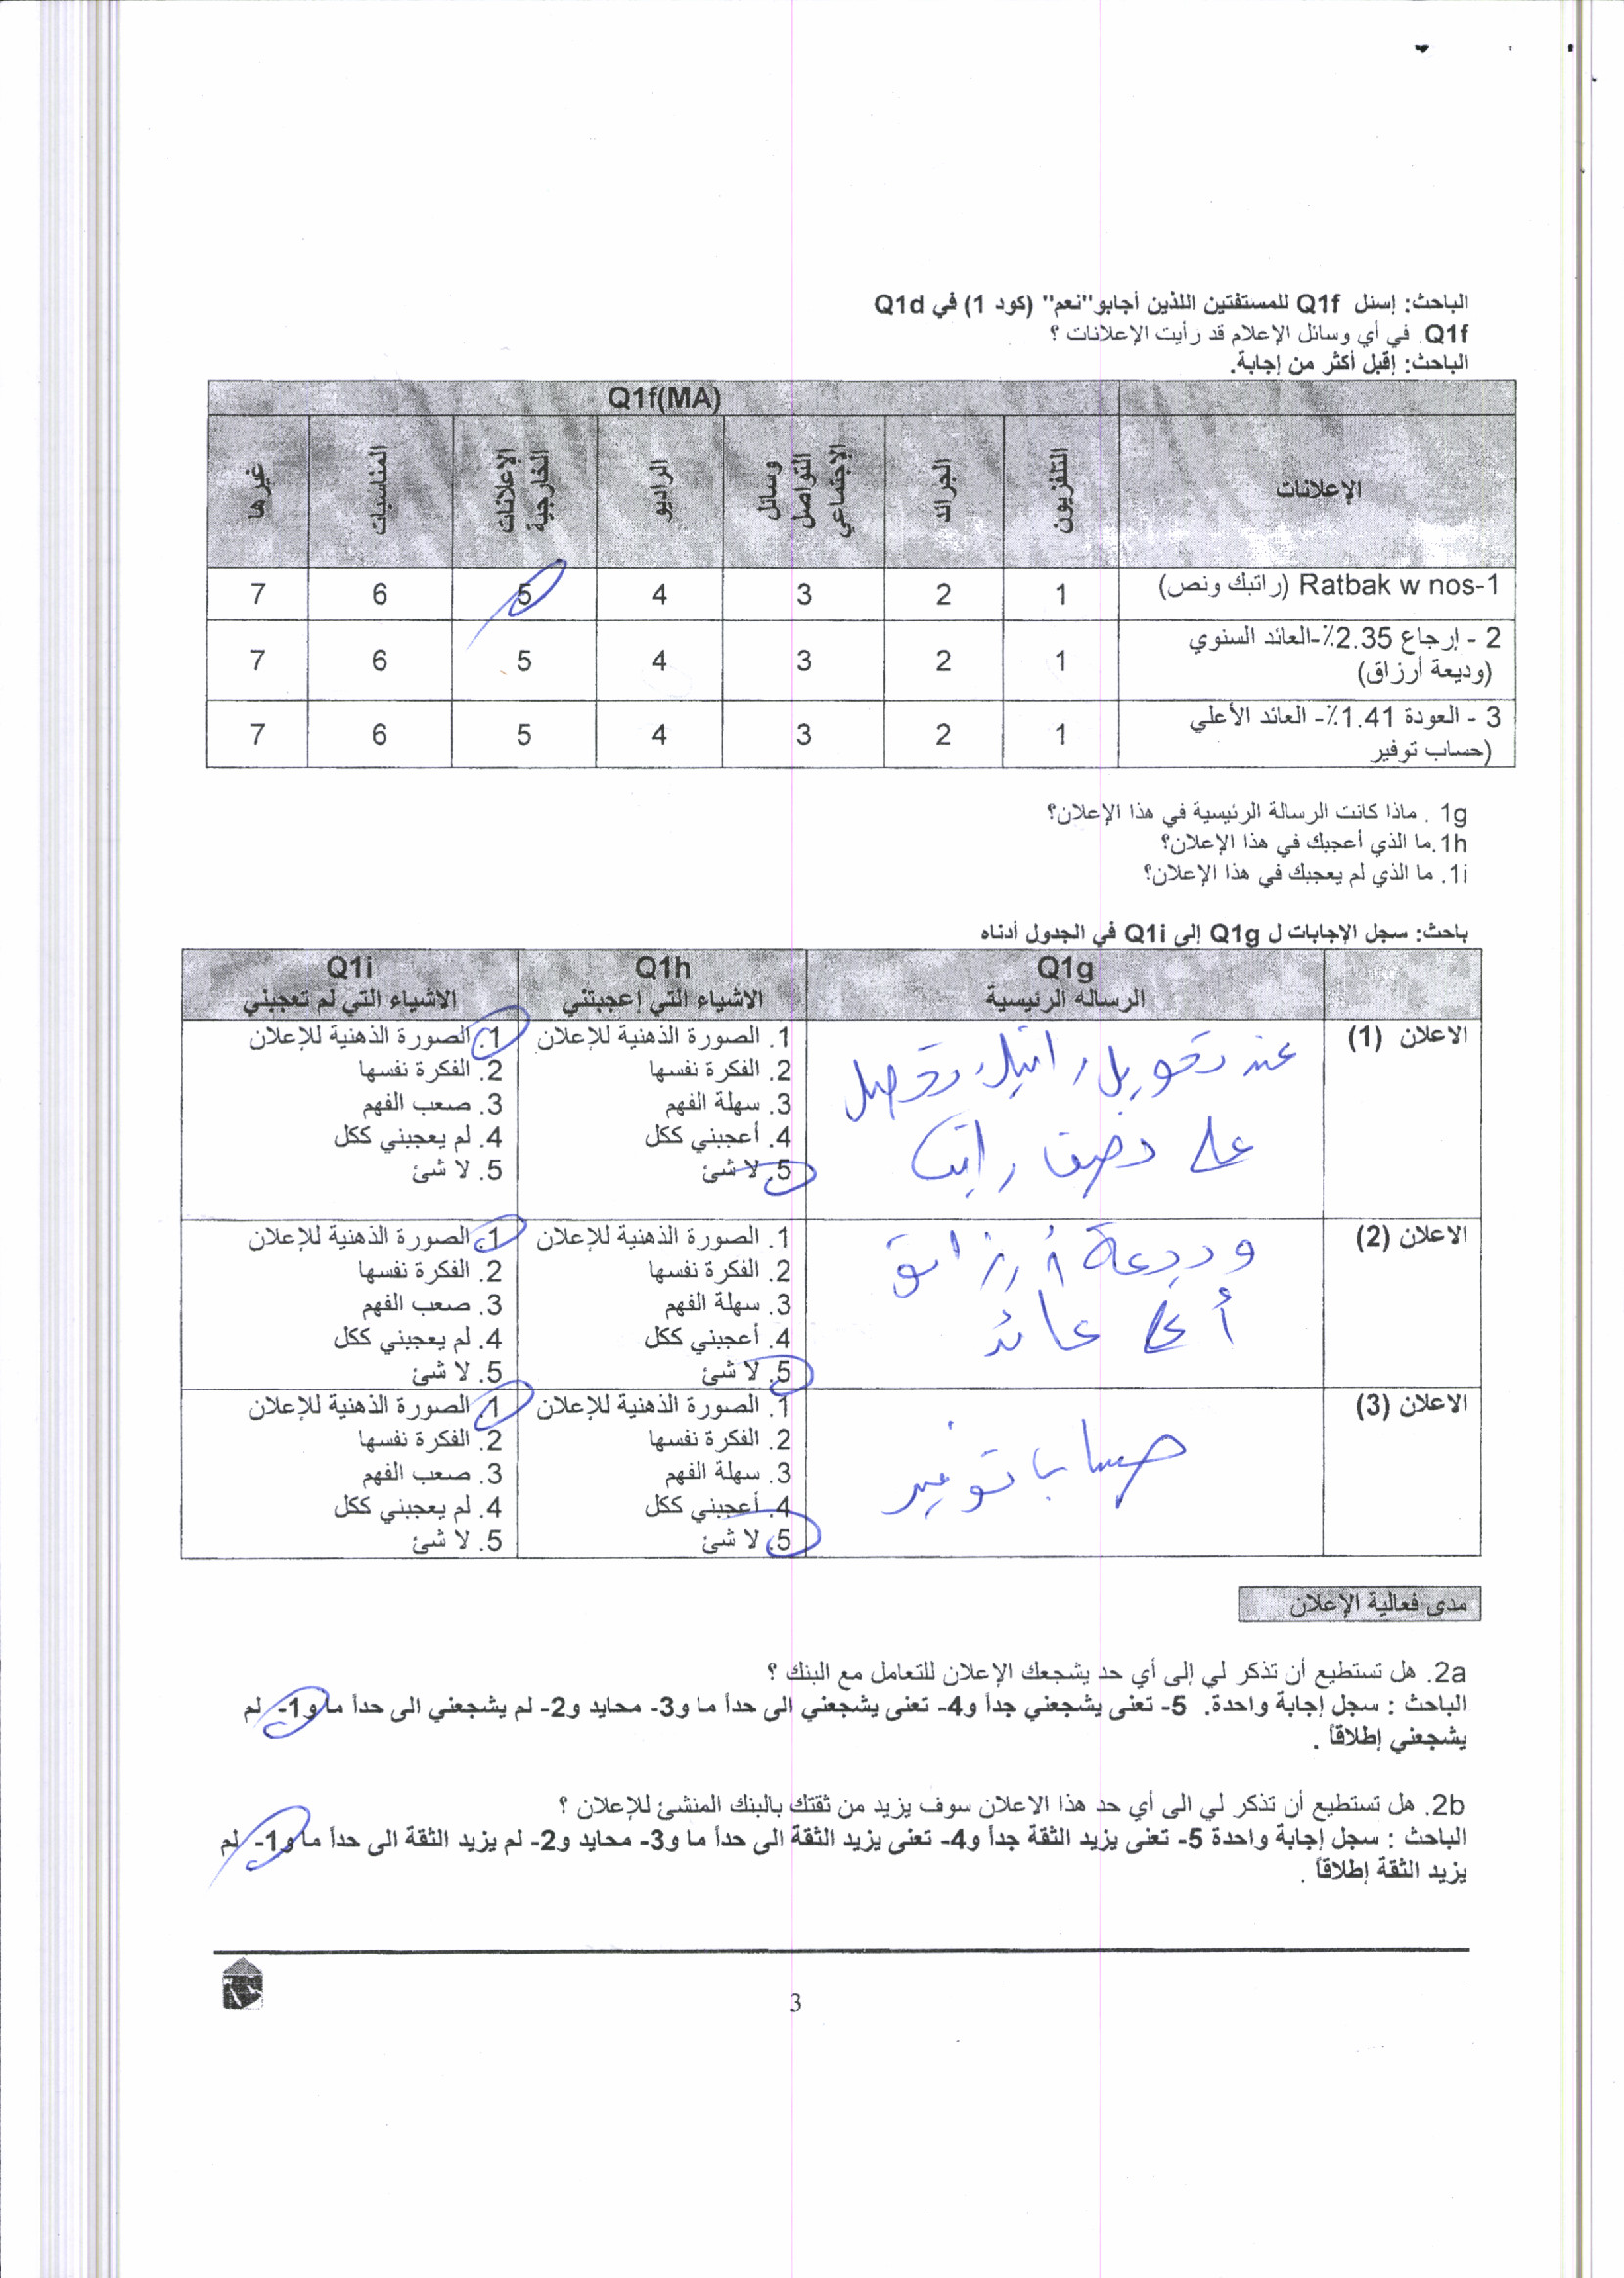 الباحث: إسئل Q1f للمستفتين اللذين أجابو"نعم" (كود 1) في Q1d
Q1f. في أي وسائل الإعلام قد رأيت الإعلانات ؟
الباحث: إقبل أكثر من إجابة.
Q1f(MA)
الإعلانات التلفزيون الجرائد وسائل التواصل الإجتماعي الراديو الإعلانات الخارجية المناسبات غيرها
1-Ratbak w nos (راتبك ونص) 1 2 3 4 5 6 7
2 - إرجاع 2.35٪-العائد السنوي
(وديعة أرزاق) 1 2 3 4 5 6 7
3 - العودة 1.41٪- العائد الأعلي
(حساب توفير 1 2 3 4 5 6 7
1g . ماذا كانت الرسالة الرئيسية في هذا الإعلان؟
1h.ما الذي أعجبك في هذا الإعلان؟
1i. ما الذي لم يعجبك في هذا الإعلان؟
باحث: سجل الإجابات ل Q1g إلى Q1i في الجدول أدناه
Q1g Q1h Q1i
الرساله الرئيسية الاشياء التي إعجبتني الاشياء التي لم تعجبني
الاعلان (1)
عند تحويل راتبك تحصل
على نصف راتب
1. الصورة الذهنية للإعلان
2. الفكرة نفسها
3. سهلة الفهم
4. أعجبني ككل
5. لا شئ
1. الصورة الذهنية للإعلان
2. الفكرة نفسها
3. صعب الفهم
4. لم يعجبني ككل
5. لا شئ
الاعلان (2)
وديعة أرزاق
أعلى عائد
1. الصورة الذهنية للإعلان
2. الفكرة نفسها
3. سهلة الفهم
4. أعجبني ككل
5. لا شئ
1. الصورة الذهنية للإعلان
2. الفكرة نفسها
3. صعب الفهم
4. لم يعجبني ككل
5. لا شئ
الاعلان (3)
حساب توفير
1. الصورة الذهنية للإعلان
2. الفكرة نفسها
3. سهلة الفهم
4. أعجبني ككل
5. لا شئ
1. الصورة الذهنية للإعلان
2. الفكرة نفسها
3. صعب الفهم
4. لم يعجبني ككل
5. لا شئ
مدى فعالية الإعلان
2a. هل تستطيع أن تذكر لي إلى أي حد يشجعك الإعلان للتعامل مع البنك ؟
الباحث : سجل إجابة واحدة. 5- تعنى يشجعني جداً و4- تعنى يشجعني الى حداً ما و3- محايد و2- لم يشجعني الى حداً ما و1- لم
يشجعني إطلاقاً .
2b. هل تستطيع أن تذكر لي الى أي حد هذا الاعلان سوف يزيد من ثقتك بالبنك المنشئ للإعلان ؟
الباحث : سجل إجابة واحدة 5- تعنى يزيد الثقة جداً و4- تعنى يزيد الثقة الى حداً ما و3- محايد و2- لم يزيد الثقة الى حداً ما و1- لم
يزيد الثقة إطلاقاً .
3